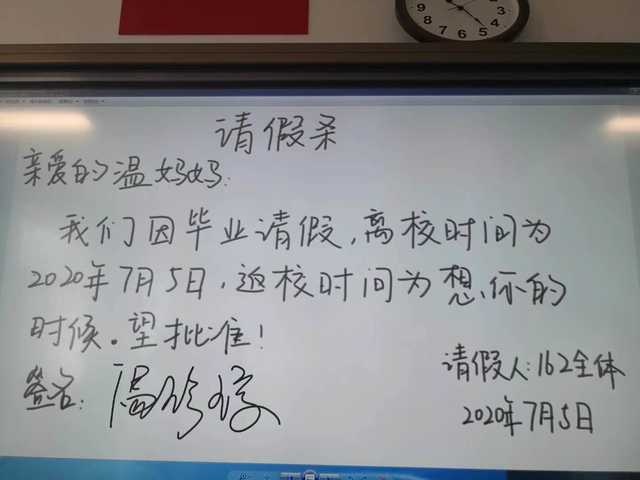 请假条
亲爱的温妈妈:
我们因毕业请假,离校时间为
2020年7月5日,返校时间为想你的
时候。望批准!
签名:
请假人:162全体
2020年7月5日